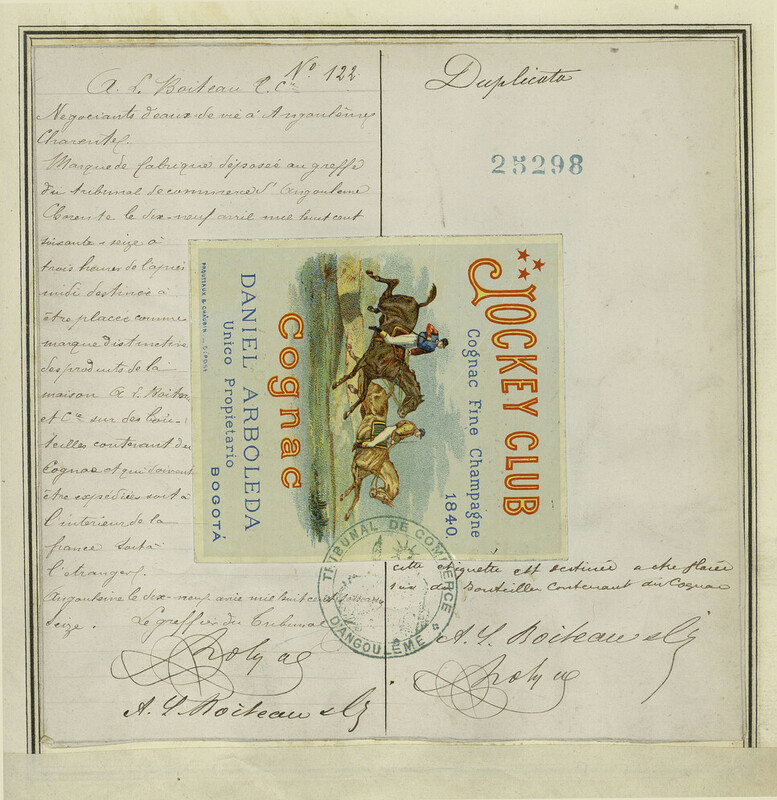 Nº 122
A. L. Boiteau & Cie
Negociants d'eaux de vie à Angoulême
Charente.
Marque de fabrique déposée au greffe
du tribunal de commerce d'Angoulême
Charente le dix-neuf avril mil huit cent
soixante-seize à
trois heures de l'après
midi destinée à
être placée comme
marque distinctive
des produits de la
maison A. L. Boiteau
et Cie sur des bou-
teilles contenant du
Cognac et qui doivent
être expédiées soit à
l'intérieur de la
france soit à
l'étranger.
Angoulême le dix-neuf avril mil huit cent soixante
seize. Le greffier du Tribunal
A. L. Boiteau & Cie
Duplicata
25298
JOCKEY CLUB
Cognac Fine Champagne
1840
Cognac
DANIEL ARBOLEDA
Unico Propietario
BOGOTÁ
TRIBUNAL DE COMMERCE
D'ANGOULÊME
cette etiquette est destinée a etre placée
sur des Bouteilles contenant du Cognac
A. L. Boiteau & Cie